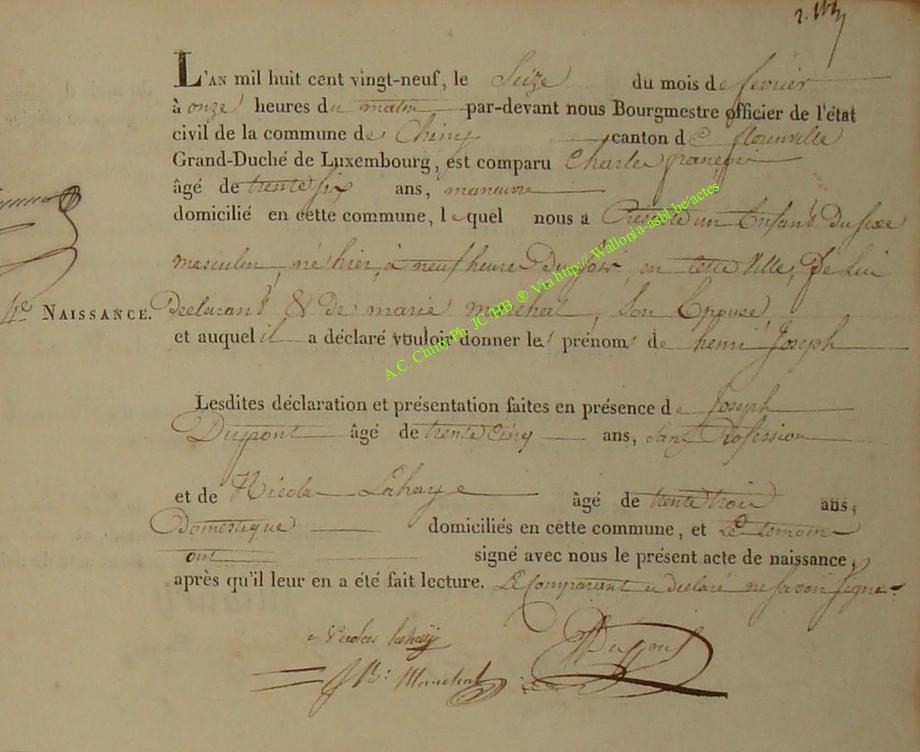 L'AN mil huit cent vingt-neuf, le Seize du mois de fevrier
à onze heures du matin par-devant nous Bourgmestre officier de l'état
civil de la commune de Chiny canton de florenville
Grand-Duché de Luxembourg, est comparu Charles françois
âgé de trente six ans, manuvre
domicilié en cette commune, lequel nous a Présenté un Enfant Du sexe
masculin, né hier, à neuf heures Du soir, en cette Ville, De Lui
4e NAISSANCE. Declarant & de marie marechal, Son Epouse,
et auquel il a déclaré vouloir donner les prénoms de henri Joseph
Lesdites déclaration et présentation faites en présence de Joseph
Duppont âgé de trente Cinq ans, Sans Profession
et de Nicolas Lahaye âgé de trente trois ans,
Domestique domiciliés en cette commune, et Les temoins
ont signé avec nous le présent acte de naissance,
après qu'il leur en a été fait lecture. Le Comparant a declaré ne savoir signe
Nicolas lahaÿ
Duppont
Marechal
A.C. Chiny Ph. JC HB ® Via http://Wallonia-asbl.be/actes